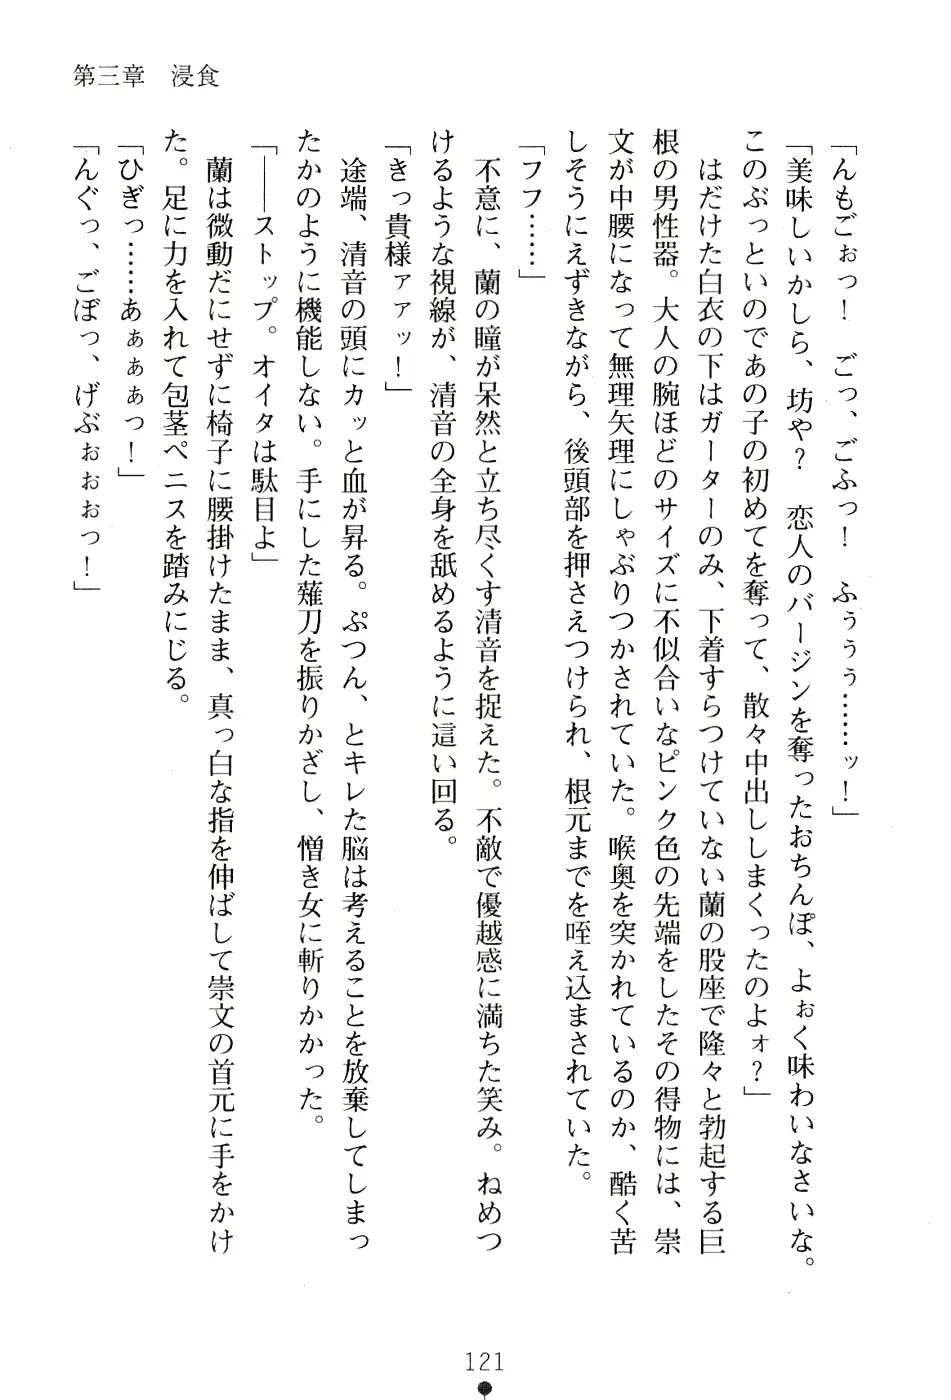 第三章　浸食
「んもごぉっ！　ごっ、ごふっ！　ふぅぅぅ……ッ！」
「美味しいかしら、坊や？　恋人のバージンを奪ったおちんぽ、よぉく味わいなさいな。
このぶっといのであの子の初めてを奪って、散々中出ししまくったのよォ？」
　はだけた白衣の下はガーターのみ、下着すらつけていない蘭の股座で隆々と勃起する巨
根の男性器。大人の腕ほどのサイズに不似合いなピンク色の先端をしたその得物には、崇
文が中腰になって無理矢理にしゃぶりつかされていた。喉奥を突かれているのか、酷く苦
しそうにえずきながら、後頭部を押さえつけられ、根元までを咥え込まされていた。
「フフ……」
　不意に、蘭の瞳が呆然と立ち尽くす清音を捉えた。不敵で優越感に満ちた笑み。ねめつ
けるような視線が、清音の全身を舐めるように這い回る。
「きっ貴様ァァッ！」
　途端、清音の頭にカッと血が昇る。ぷつん、とキレた脳は考えることを放棄してしまっ
たかのように機能しない。手にした薙刀を振りかざし、憎き女に斬りかかった。
「――ストップ。オイタは駄目よ」
　蘭は微動だにせずに椅子に腰掛けたまま、真っ白な指を伸ばして崇文の首元に手をかけ
た。足に力を入れて包茎ペニスを踏みにじる。
「ひぎっ……あぁぁぁっ！」
「んぐっ、ごぼっ、げぶぉぉぉっ！」
121